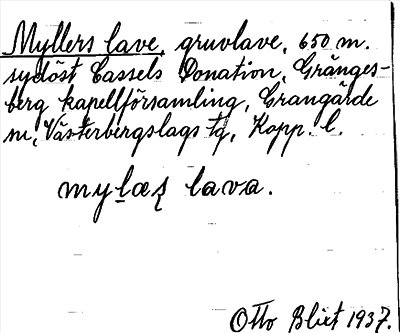 Myllers lave, gruvlave, 650 m.
sydöst Cassels Donation, Gränges-
berg kapellförsamling, Grangärde
sn, Västerbergslags tg, Kopp. l.
lava.
Otto Blixt 1937.